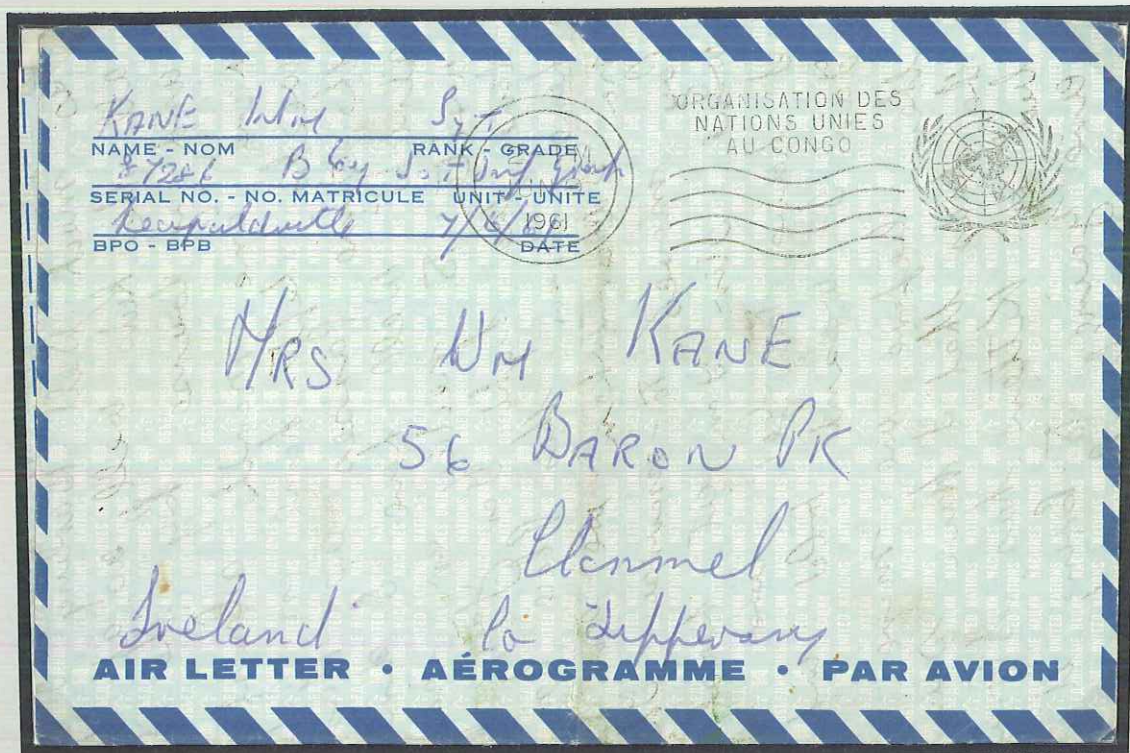 KANE Wm Sgt
NAME - NOM RANK - GRADE
87286 B Coy Inf Group
SERIAL NO. - NO. MATRICULE UNIT - UNITE
Leopoldville 7/6/61
BPO - BPB DATE
1961
ORGANISATION DES
NATIONS UNIES
AU CONGO
MRS WM KANE
56 BARON PK
Clonmel
Ireland Co Tipperary
AIR LETTER • AÉROGRAMME • PAR AVION